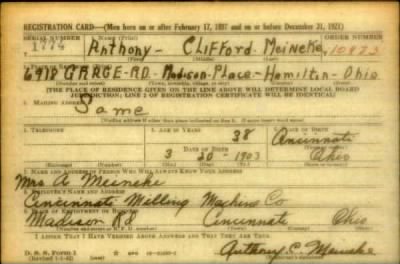 REGISTRATION CARD—(Men born on or after February 17, 1897 and on or before December 31, 1921)
SERIAL NUMBER 1. NAME (Print) ORDER NUMBER
1774 Anthony - Clifford - Meineke 10473
(First) (Middle) (Last)
6918 GRACE-RD- Madison-Place-Hamilton-Ohio
[THE PLACE OF RESIDENCE GIVEN ON THE LINE ABOVE WILL DETERMINE LOCAL BOARD
JURISDICTION; LINE 2 OF REGISTRATION CERTIFICATE WILL BE IDENTICAL]
3. MAILING ADDRESS
Same
[Mailing address if other than place indicated on line 2. If same insert word same]
4. TELEPHONE 5. AGE IN YEARS 6. PLACE OF BIRTH
38 Cincinnati
DATE OF BIRTH
3 20 - 1903 Ohio
(Exchange) (Number) (Mo.) (Day) (Yr.) (State or country)
7. NAME AND ADDRESS OF PERSON WHO WILL ALWAYS KNOW YOUR ADDRESS
Mrs A Meineke
8. EMPLOYER'S NAME AND ADDRESS
Cincinnati Milling Machine Co
9. PLACE OF EMPLOYMENT OR BUSINESS
Madison Rd Cincinnati Ohio
I AFFIRM THAT I HAVE VERIFIED ABOVE ANSWERS AND THAT THEY ARE TRUE.
Anthony C. Meineke
D. S. S. Form 1